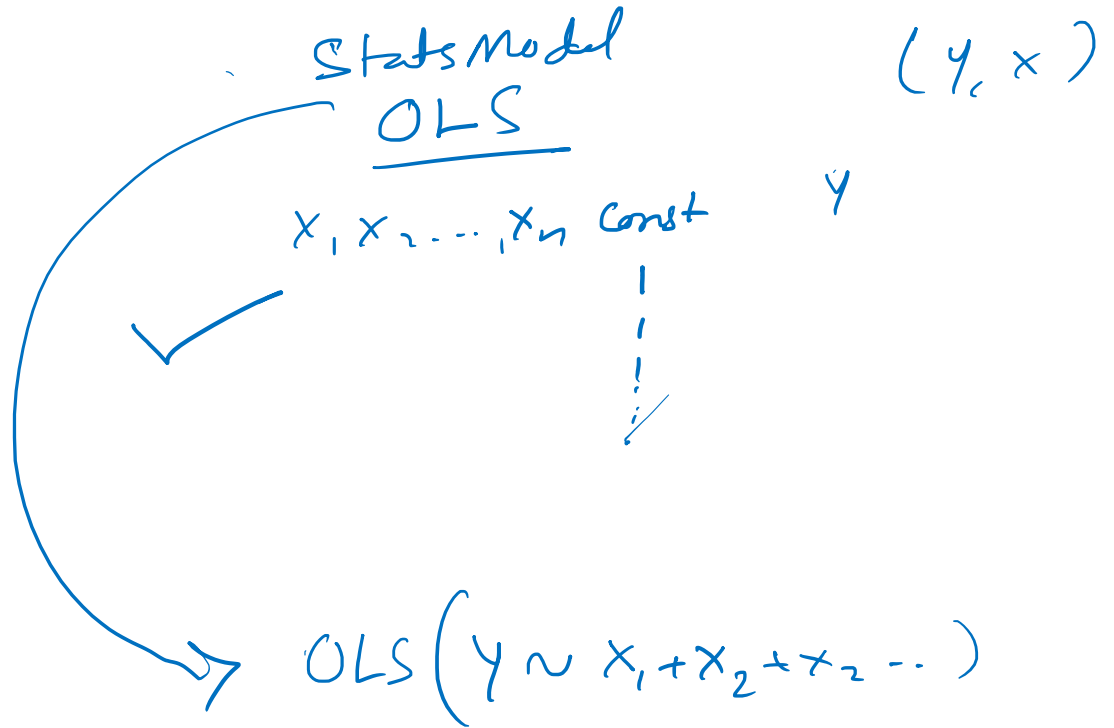 StatsModel (y, x)
OLS
x₁ x₂ ...., xₙ const y
OLS(y ~ x₁ + x₂ + x₂ --)